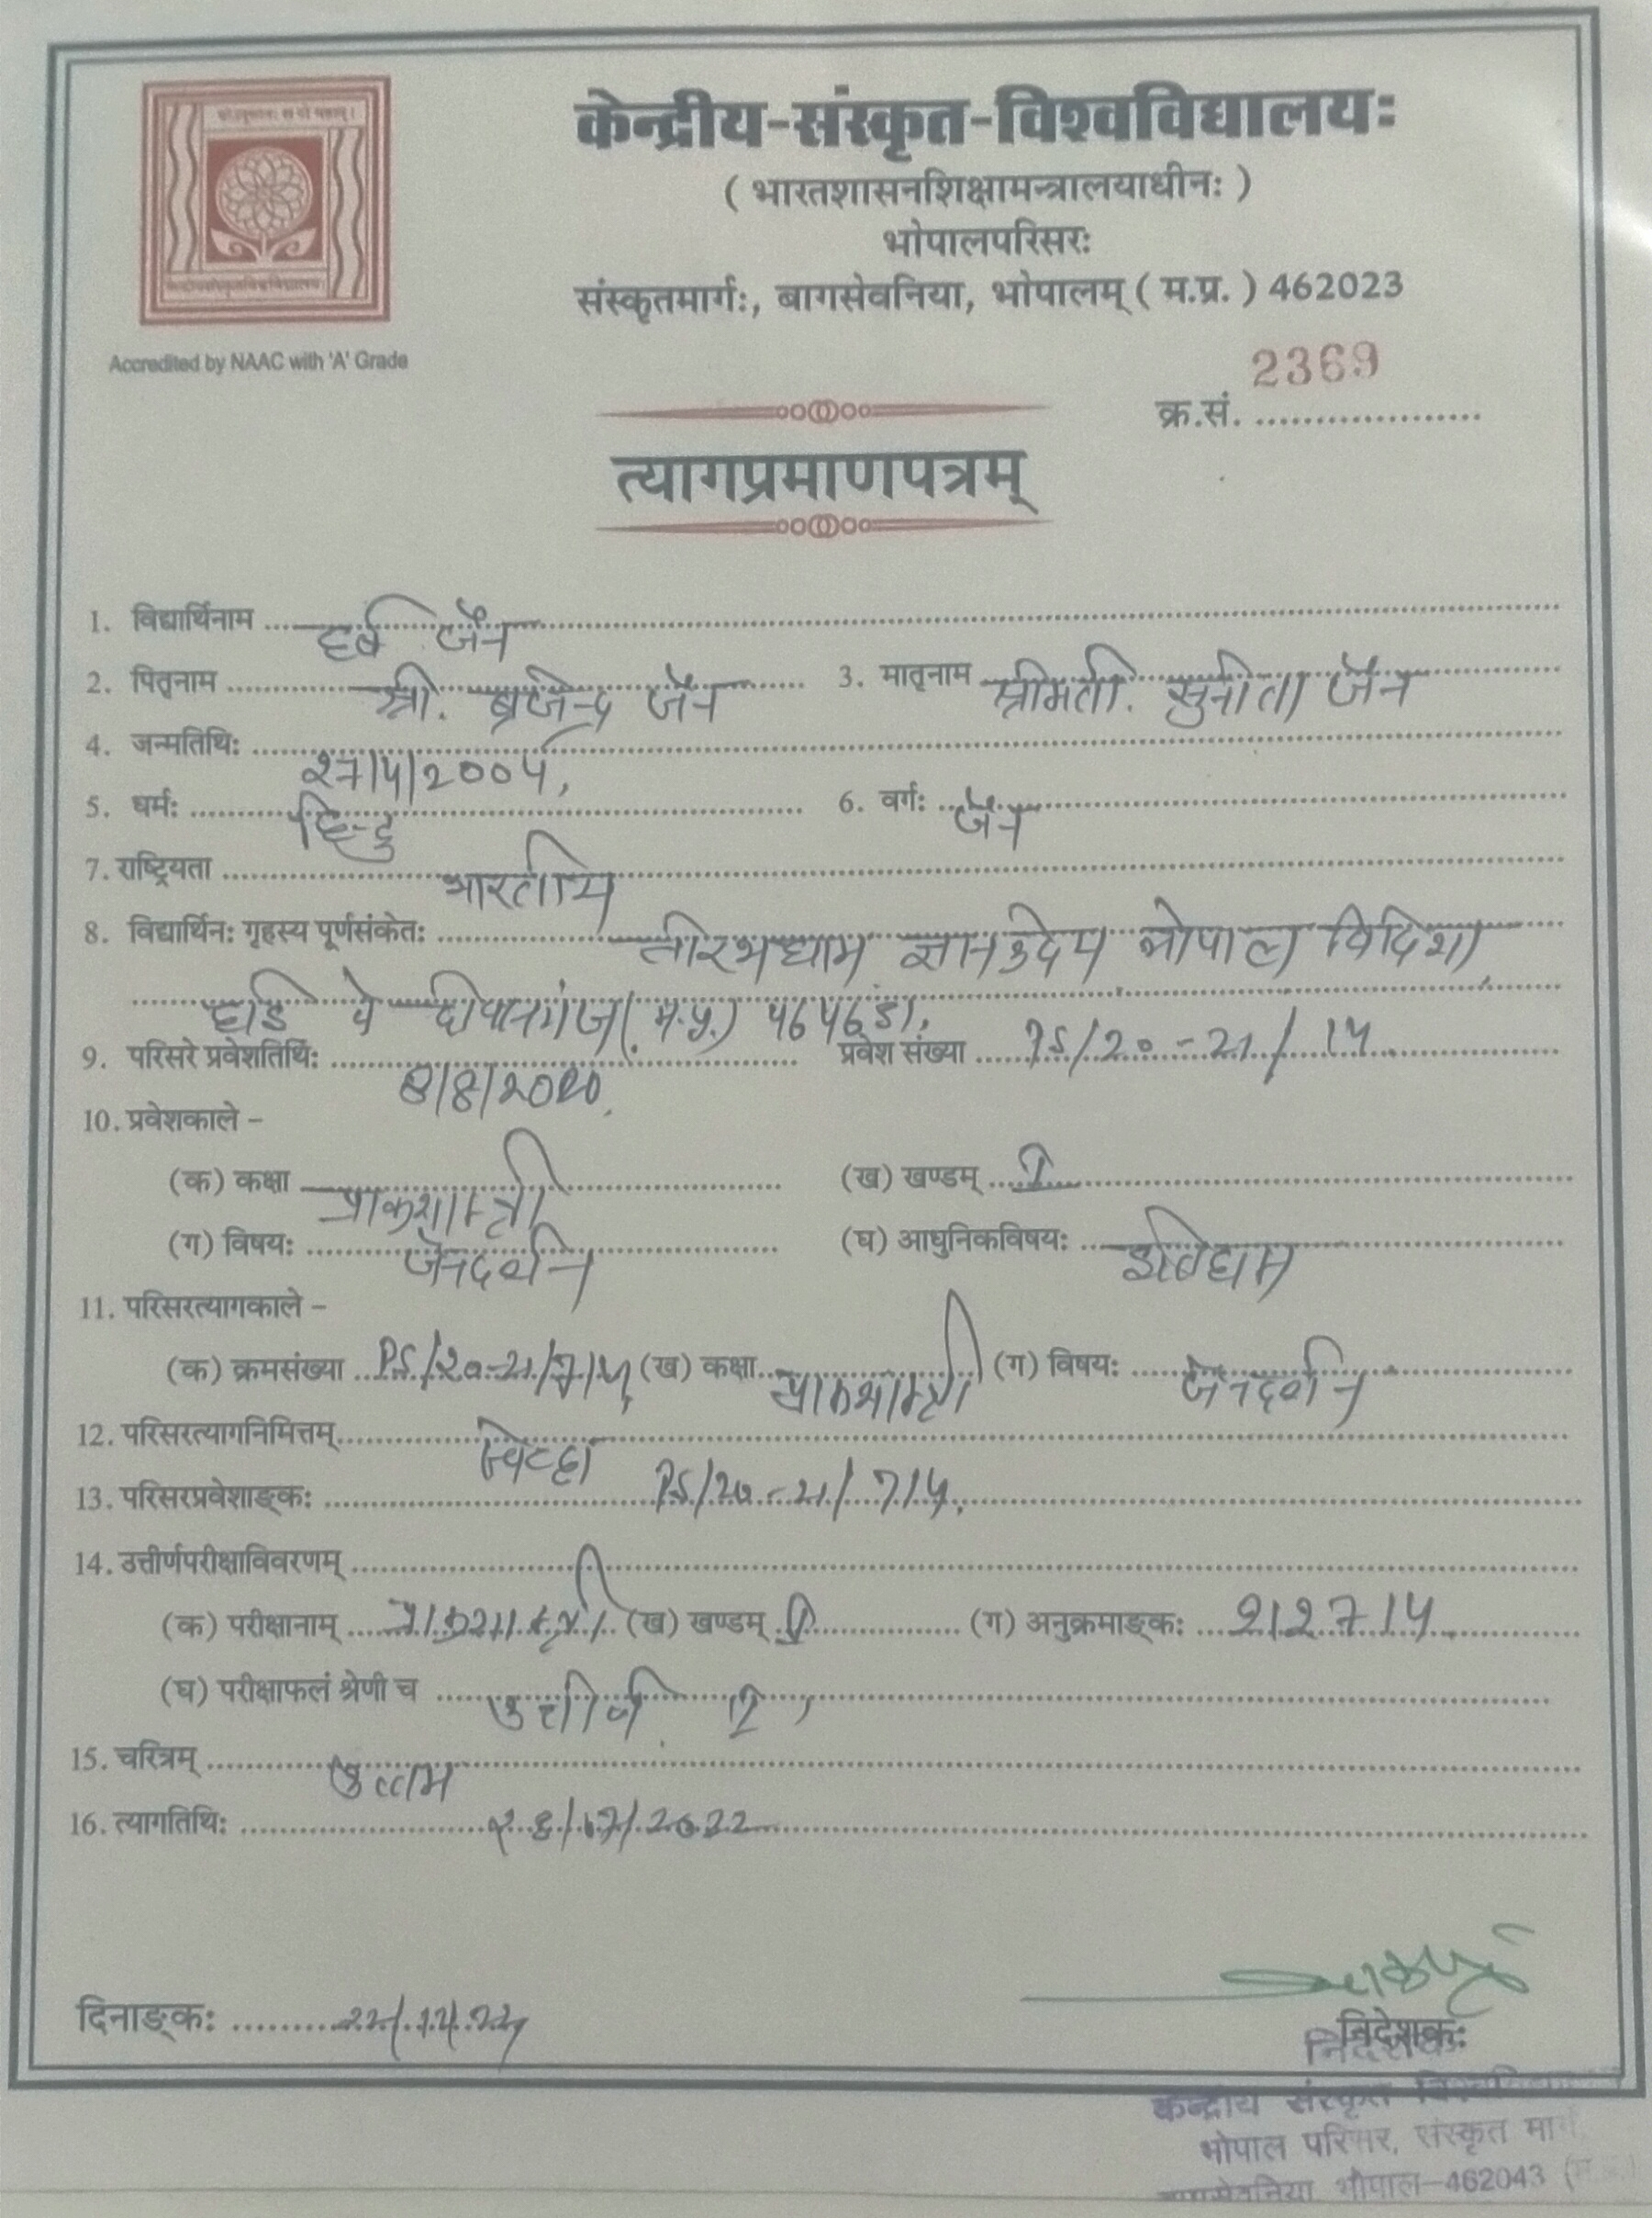 केन्द्रीय-संस्कृत-विश्वविद्यालयः
( भारतशासनशिक्षामन्त्रालयाधीनः )
भोपालपरिसरः
संस्कृतमार्गः, बागसेवनिया, भोपालम् ( म.प्र. ) 462023
Accredited by NAAC with 'A' Grade
2369
क्र.सं. ....................
त्यागप्रमाणपत्रम्
1. विद्यार्थिनाम हर्ष जैन
2. पितृनाम श्री. ब्रजेन्द्र जैन 3. मातृनाम श्रीमती. सुनीता जैन
4. जन्मतिथिः २७/५/२००५,
5. धर्मः हिन्दु 6. वर्गः जैन
7. राष्ट्रियता भारतीय
8. विद्यार्थिनः गृहस्य पूर्णसंकेतः तीरथधाम ज्ञानउदय भोपाल विदिशा
हाई वे दीवानगंज (म.प्र.)
9. परिसरे प्रवेशतिथिः 8/8/2020 प्रवेश संख्या PS/20-21/
10. प्रवेशकाले –
(क) कक्षा प्राकशास्त्री (ख) खण्डम् I
(ग) विषयः जैनदर्शन (घ) आधुनिकविषयः
11. परिसरत्यागकाले –
(क) क्रमसंख्या PS/20-21/ (ख) कक्षा प्राकशास्त्री (ग) विषयः जैनदर्शन
12. परिसरत्यागनिमित्तम्
13. परिसरप्रवेशाङ्कः PS/20-21/714.
14. उत्तीर्णपरीक्षाविवरणम्
(क) परीक्षानाम् प्राकशास्त्री (ख) खण्डम् (ग) अनुक्रमाङ्कः
(घ) परीक्षाफलं श्रेणी च उत्तीर्ण
15. चरित्रम् उत्तम
16. त्यागतिथिः
दिनाङ्कः
निदेशकः
निदेशक
केन्द्रीय संस्कृत
भोपाल परिसर, संस्कृत मार्ग,
बागसेवनिया भोपाल-462043